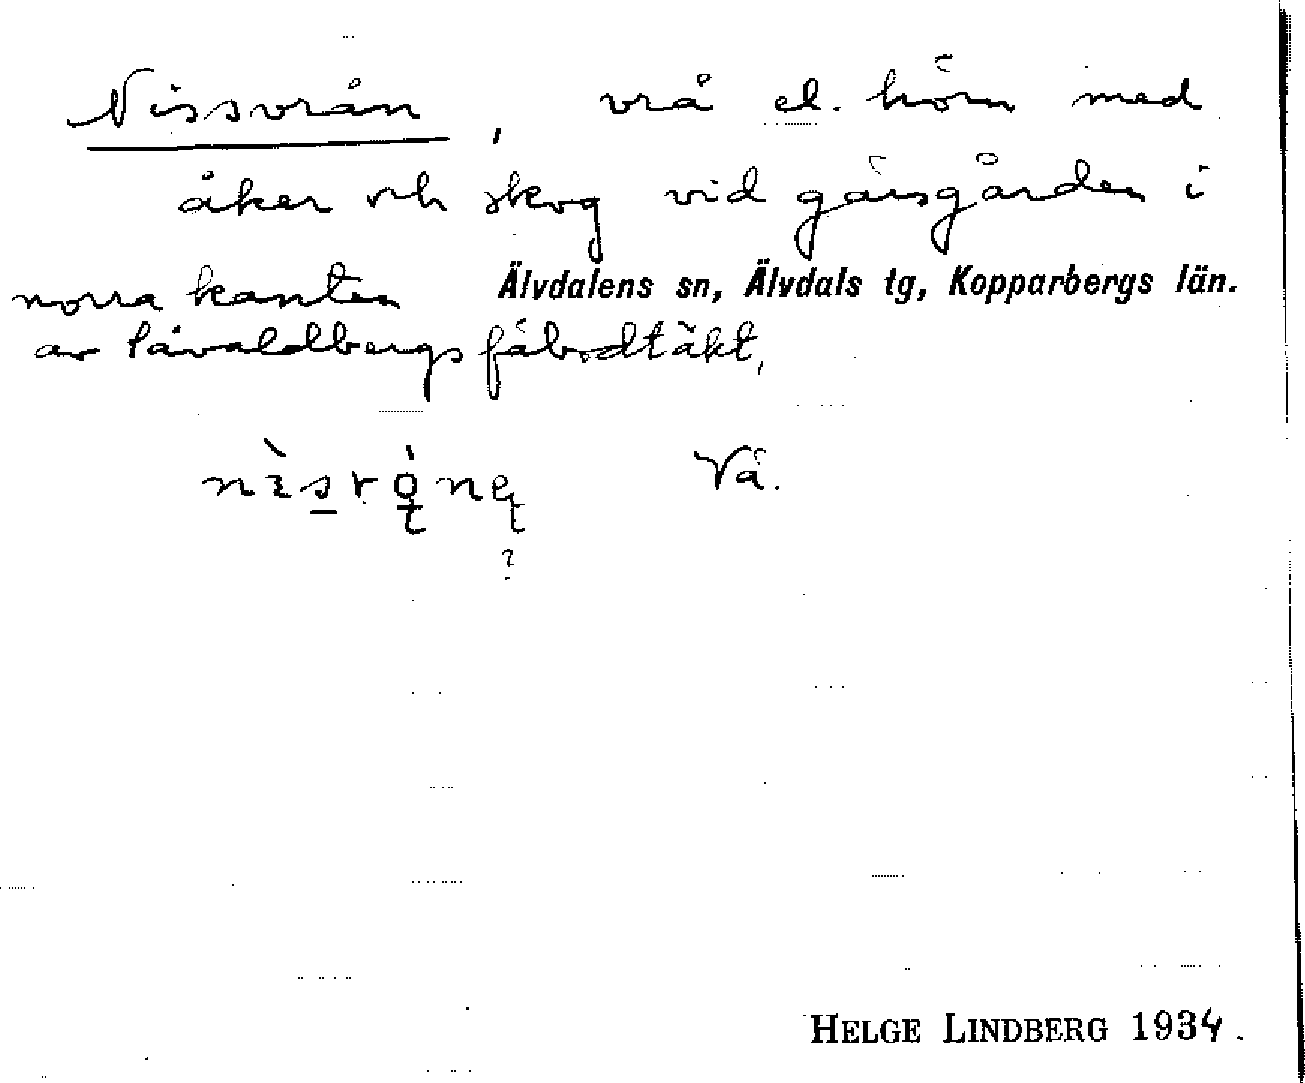 Nissvrån, vrå el. hörn med
åker och skog vid gärsgården i
norra kanten Älvdalens sn, Älvdals tg, Kopparbergs län.
av Påvaldbergs fäbodtäkt,
Vä.
?
HELGE LINDBERG 1934.